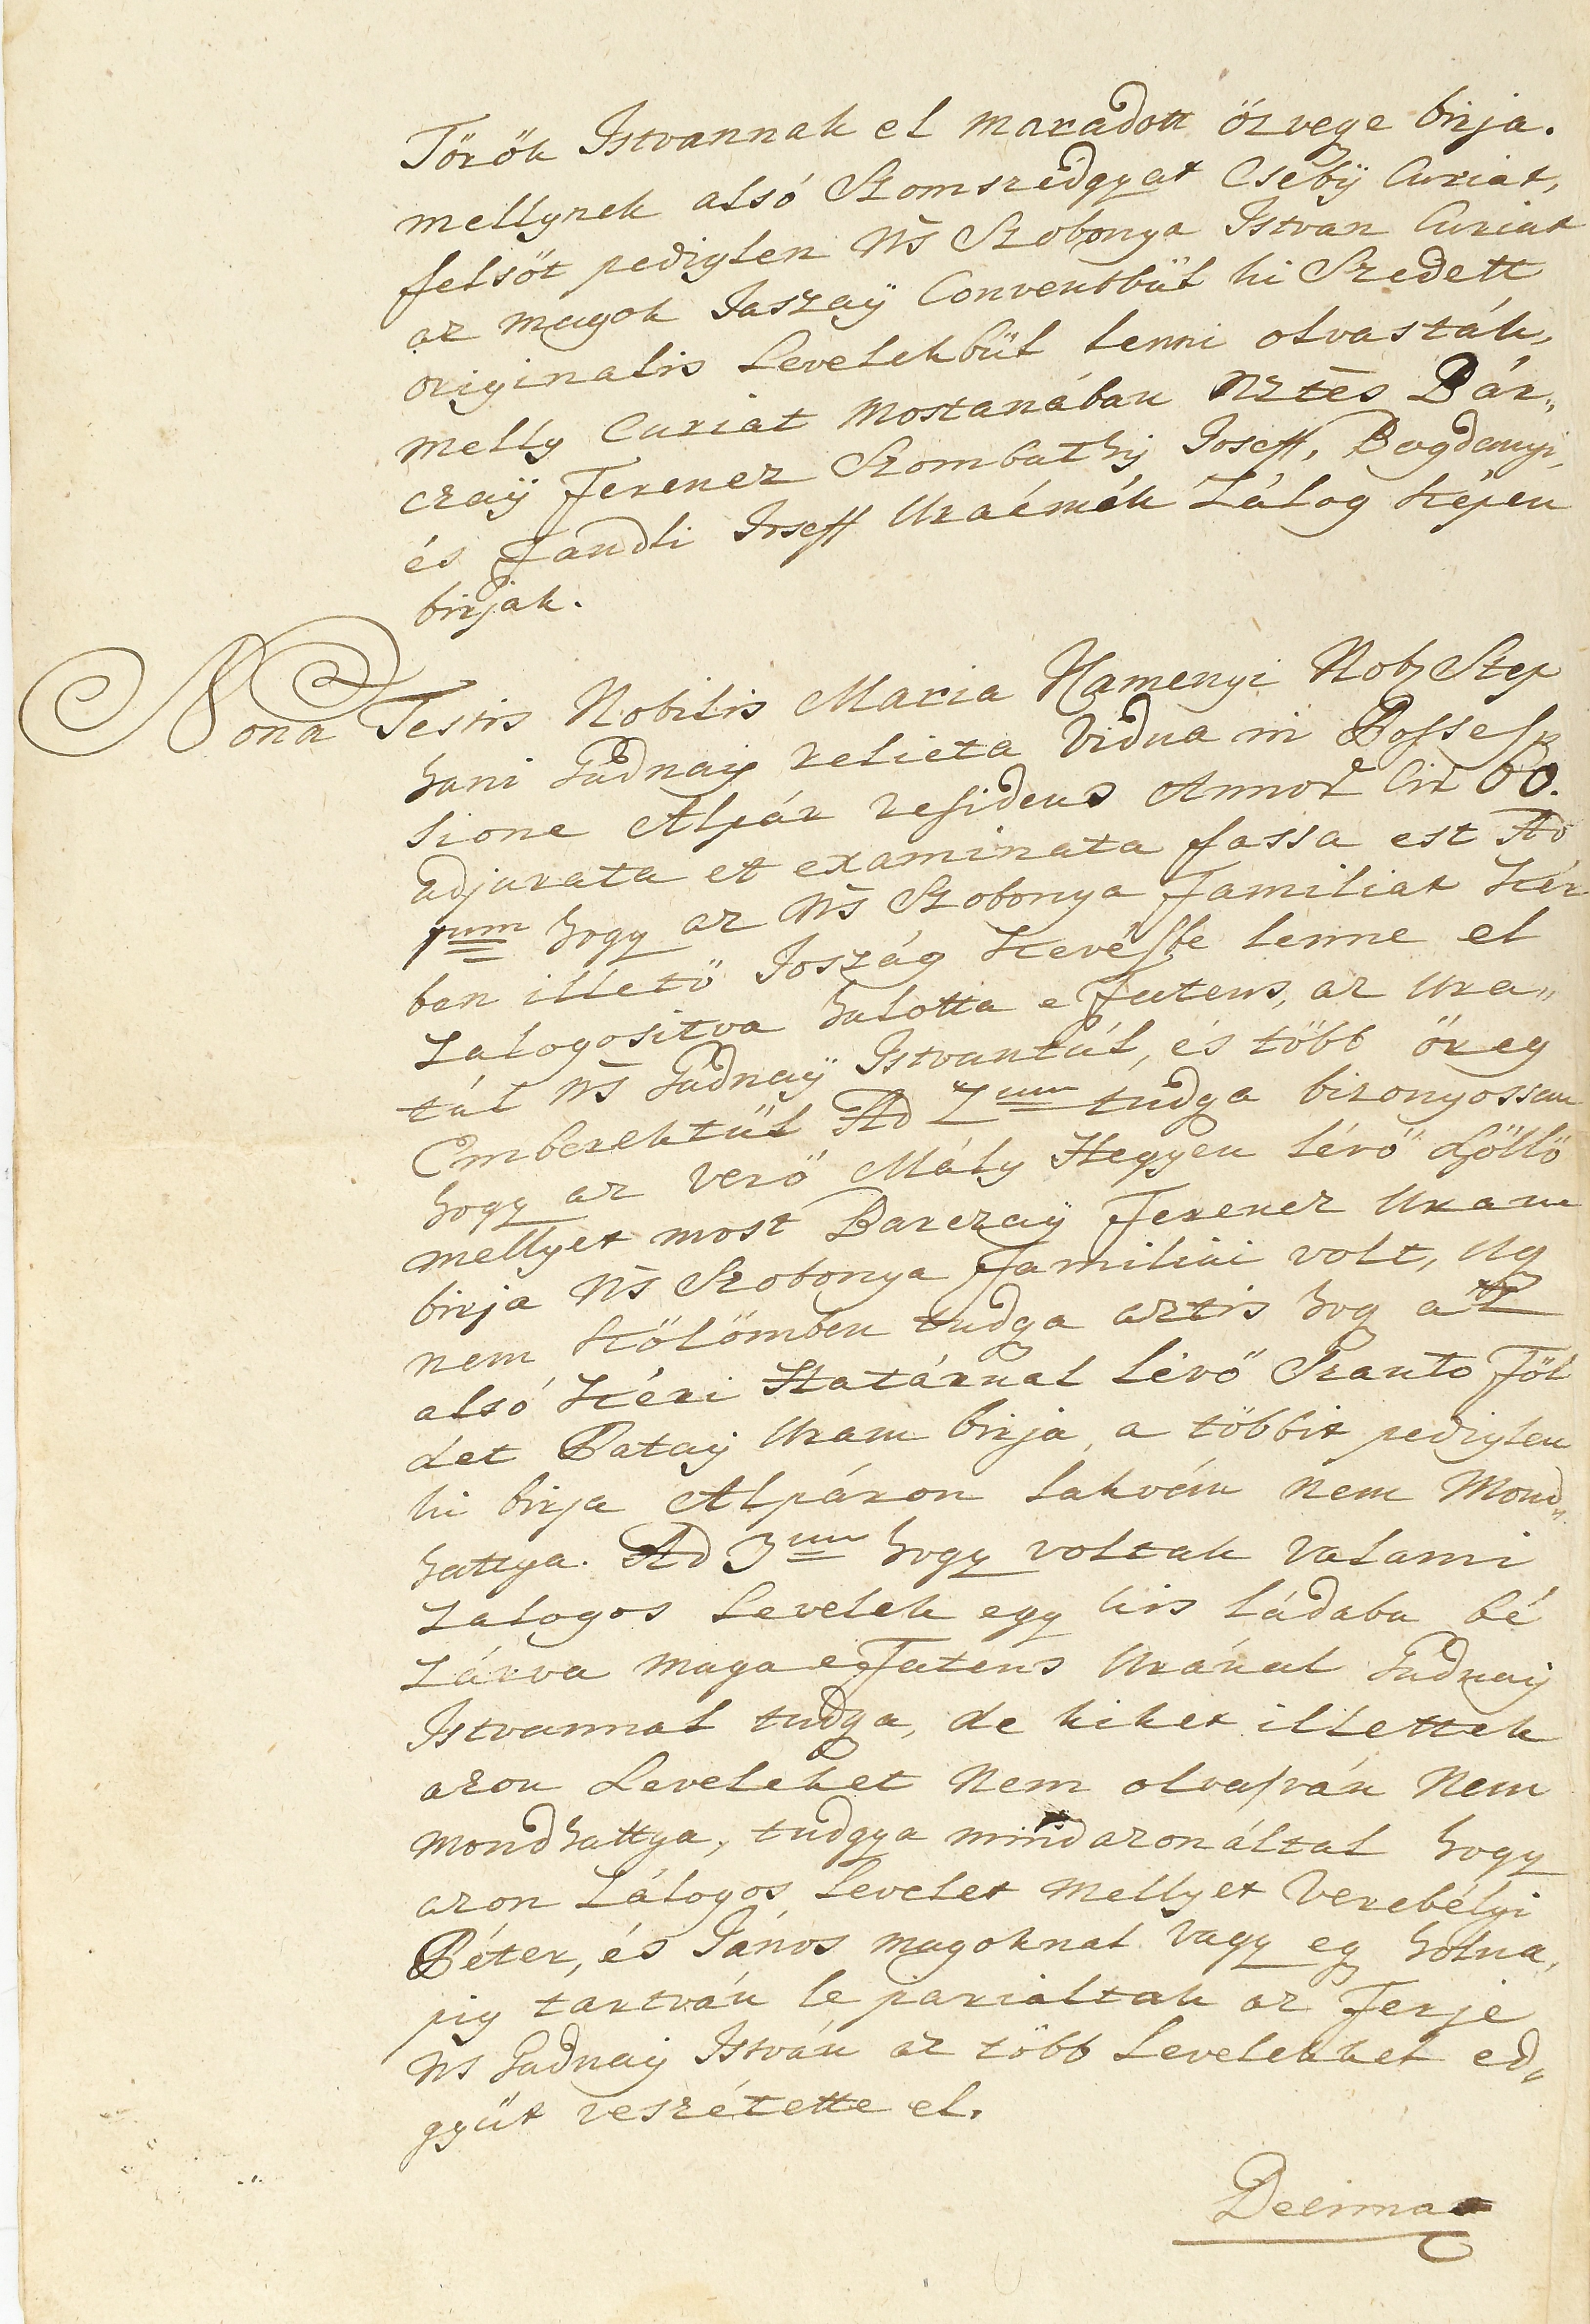 Török Istvannak el maradott özvege birja.
mellynek alsó Szomszédgyat Cseby Curiat,
felsöt pediglen Ns Szobonya Istvan Curiat
az magok Jaszaÿ Conventbül ki Szedett
originalis Levelekbül lenni olvasták,
melly Curiat mostanában Nztes Bár„
czaÿ Ferencz Szombathÿ Joseff, Bogdanyi,
és Fandli Joseff Uraémék Zálog képen
birják.
Nona Testis Nobilis Maria Namenyi Nob Step
hani Gudnaÿ relicta Vidua in Possess
sione Alpár residens Annor Cir 60.
adjurata et examinata fassa est Ad
1um hogy az Ns Szobonya Familiat Kér
ben illetö Joszág Kevésbe lenne el
Zalogositva halotta e Fatens, az Ura„
tul Ns Gudnaÿ Istvantul, és több öreg
Emberektül Ad 2um tudga bizonyossan
hogy az verö Mály Hegyen lévö Szöllö
mellyet most Barczaÿ Ferencz Uram
birja Ns Szobonya Familiai volt, Ug
nem Kölömben tudga aztis hog a
alsó Kéri Határnal lévö Szanto Föl
det Bataÿ Uram birja, a többit pediglen
ki birja Alpáron lakván nem Mond„
hattya. Ad 3um hogy voltak valami
Zalogos Levelek egy kis ládaba bé
Zárva maga e Fatens Uránal Gudnaÿ
Istvannal tudga, de kiket illettek
azon Leveleket Nem olvasván Nem
mondhattya, tudgya mindazonáltal hogy
azon Zálogos Levelet mellyet Verebélyi
Péter, és János magoknal vagy eg holna,
pig tartván le pariáltak az Ferje
Ns Gudnaÿ István az több Levelekkel ed„
gyüt veszétette el.
Decima